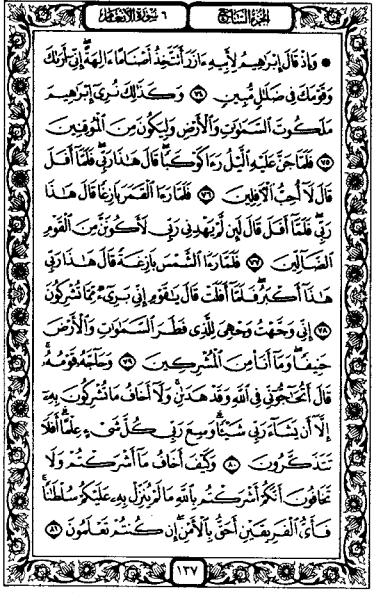 الجزء السابع ٦ سورة الأنعام
۞ وَإِذْ قَالَ إِبْرَٰهِيمُ لِأَبِيهِ ءَازَرَ أَتَتَّخِذُ أَصْنَامًا ءَالِهَةً إِنِّىٓ أَرَىٰكَ
وَقَوْمَكَ فِى ضَلَٰلٍ مُّبِينٍ ٧٤ وَكَذَٰلِكَ نُرِىٓ إِبْرَٰهِيمَ
مَلَكُوتَ ٱلسَّمَٰوَٰتِ وَٱلْأَرْضِ وَلِيَكُونَ مِنَ ٱلْمُوقِنِينَ
٧٥ فَلَمَّا جَنَّ عَلَيْهِ ٱلَّيْلُ رَءَا كَوْكَبًا قَالَ هَٰذَا رَبِّى فَلَمَّآ أَفَلَ
قَالَ لَآ أُحِبُّ ٱلْءَافِلِينَ ٧٦ فَلَمَّا رَءَا ٱلْقَمَرَ بَازِغًا قَالَ هَٰذَا
رَبِّى فَلَمَّآ أَفَلَ قَالَ لَئِن لَّمْ يَهْدِنِى رَبِّى لَأَكُونَنَّ مِنَ ٱلْقَوْمِ
ٱلضَّآلِّينَ ٧٧ فَلَمَّا رَءَا ٱلشَّمْسَ بَازِغَةً قَالَ هَٰذَا رَبِّى
هَٰذَآ أَكْبَرُ فَلَمَّآ أَفَلَتْ قَالَ يَٰقَوْمِ إِنِّى بَرِىٓءٌ مِّمَّا تُشْرِكُونَ
٧٨ إِنِّى وَجَّهْتُ وَجْهِىَ لِلَّذِى فَطَرَ ٱلسَّمَٰوَٰتِ وَٱلْأَرْضَ
حَنِيفًا وَمَآ أَنَا۠ مِنَ ٱلْمُشْرِكِينَ ٧٩ وَحَآجَّهُۥ قَوْمُهُۥ
قَالَ أَتُحَٰٓجُّوٓنِّى فِى ٱللَّهِ وَقَدْ هَدَىٰنِ وَلَآ أَخَافُ مَا تُشْرِكُونَ بِهِۦٓ
إِلَّآ أَن يَشَآءَ رَبِّى شَيْـًٔا وَسِعَ رَبِّى كُلَّ شَىْءٍ عِلْمًا أَفَلَا
تَتَذَكَّرُونَ ٨٠ وَكَيْفَ أَخَافُ مَآ أَشْرَكْتُمْ وَلَا
تَخَافُونَ أَنَّكُمْ أَشْرَكْتُم بِٱللَّهِ مَا لَمْ يُنَزِّلْ بِهِۦ عَلَيْكُمْ سُلْطَٰنًا
فَأَىُّ ٱلْفَرِيقَيْنِ أَحَقُّ بِٱلْأَمْنِ إِن كُنتُمْ تَعْلَمُونَ ٨١
١٣٧